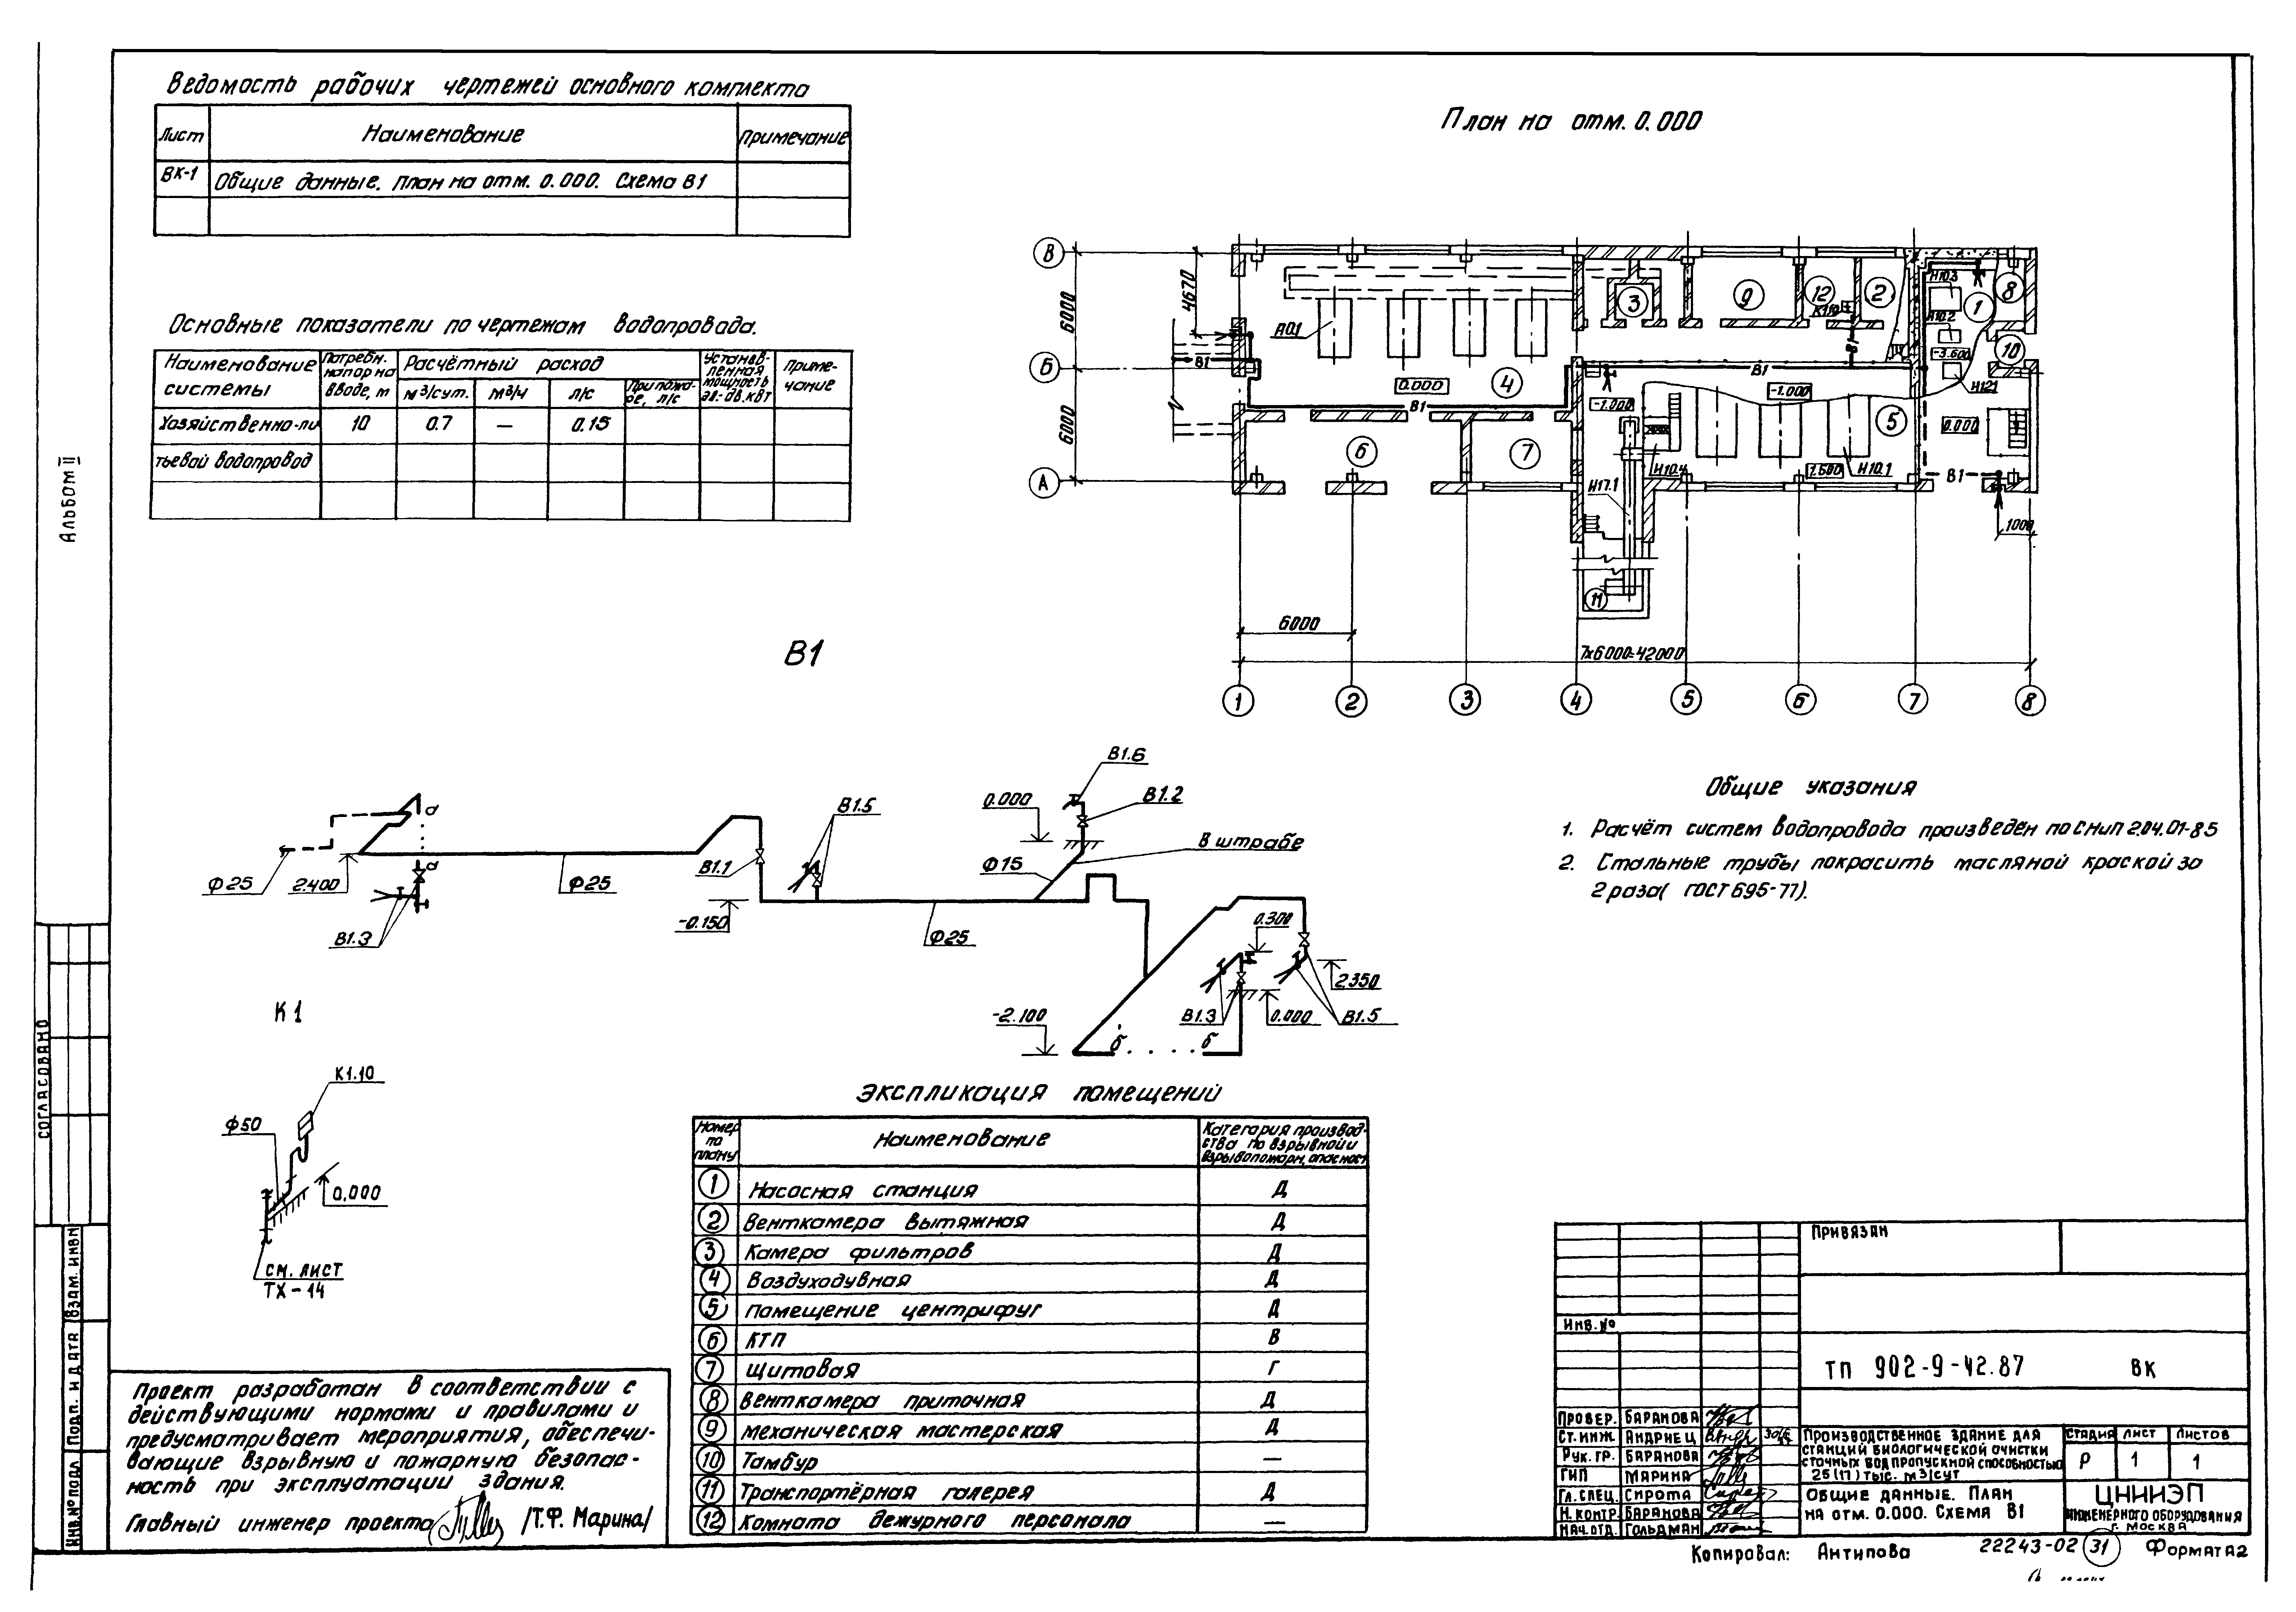 Ведомость рабочих чертежей основного комплекта
Лист Наименование Примечание
ВК-1 Общие данные. План на отм. 0.000. Схема В1
Основные показатели по чертежам водопровода.
Наименование системы Потребн. напор на вводе, м Расчётный расход Установленная мощность эл.-дв. квт Примечание
м3/сут. м3/ч л/с При пожаре, л/с
Хозяйственно-пи 10 0.7 — 0.15
тьевой водопровод
План на отм. 0.000
В
Б
А
6000
6000
4670
А01
3
9
12
2
1
8
10
К1.10
Н10.3
Н10.2
-3.600
Н12.1
В1
В1
В1
В1
В1
0.000
4
-1.000
-1.000
5
0.000
6
7
Н10.4
Н10.1
1.500
Н17.1
11
1000
6000
7х6000=42000
1 2 3 4 5 6 7 8
В1
Ф25
2.400
а
а
В1.3
Ф25
В1.1
-0.150
В1.5
Ф25
0.000
В1.6
В1.2
В штрабе
Ф15
0.300
2.350
В1.3
0.000
В1.5
-2.100
б
б
К1
К1.10
Ф50
0,000
см. лист
ТХ-14
Общие указания
1. Расчёт систем водопровода произведен по СНиП 2.04.01-85
2. Стальные трубы покрасить масляной краской за
2 раза( ГОСТ 695-77).
Экспликация помещений
Номер по плану Наименование Категория производства по взрывной и взрывопожарн. опасност
1 Насосная станция Д
2 Венткамера вытяжная Д
3 Камера фильтров Д
4 Воздуходувная Д
5 Помещение центрифуг Д
6 КТП В
7 Щитовая Г
8 Венткамера приточная Д
9 Механическая мастерская Д
10 Тамбур —
11 Транспортёрная галерея Д
12 Комната дежурного персонала —
Проект разработан в соответствии с
действующими нормами и правилами и
предусматривает мероприятия, обеспечи-
вающие взрывную и пожарную безопас-
ность при эксплуатации здания.
Главный инженер проекта /Т.Ф. Марина/
Альбом II
Согласовано
Взам. инв№
Подп. и дата
Инв.№ подл
Привязан
Инв.№
ТП 902-9-42.87 ВК
Провер. Баранова
Ст. инж. Андриец
Рук. гр. Баранова
ГИП Марина
Гл. спец. Сирота
Н. контр. Баранова
Нач. отд. Гольдман
Производственное здание для
станций биологической очистки
сточных вод пропускной способностью
25(17) тыс. м3/сут
Стадия Лист Листов
Р 1 1
Общие данные. План
на отм. 0.000. Схема В1
ЦНИИЭП
инженерного оборудования
г. Москва
Копировал: Антипова 22243-02 31 Формат А2